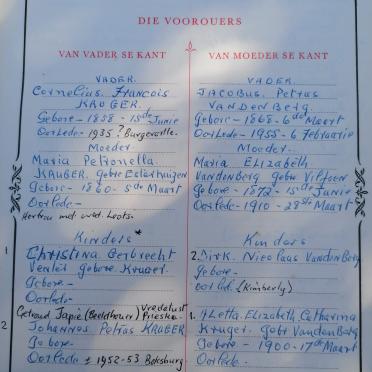 DIE VOOROUERS
VAN VADER SE KANT
VADER.
Cornelius. Francois
KRUGER.
Gebore - 1858 - 15de Junie
Oorlede - 1935? Burgerville.
Moeder
Maria Petronella
KRUGER. gebore
Gebore - 1860 - 5de Maart
Oorlede -
Hertrou met wed. Loots.
Kinders *
1 Christina Gerbrecht
Venter gebore Kruger.
Gebore -
Oorlede -
Getroud Japie (Beeldhouer) Vredelust Prieska.
2 Johannes Petrus KRUGER
Gebore -
Oorlede ± 1952-53 Boksburg
VAN MOEDER SE KANT
VADER.
JACOBUS. Petrus
VANDENBerg.
Gebore - 1868 - 6de Maart
Oorlede - 1955 - 6 Februarie
Moeder.
Maria ELIZabeth
Vandenberg gebr Viljoen
Gebore - 1872 - 15de Junie
Oorlede - 1910 - 28ste Maart
Kinders
2. Dirk. Nicolaas VandenBerg
Gebore -
Oorlede. (Kimberly)
1. Aletta. Elizabeth. Catharina
Kruger. gebr VandenBerg
Gebore - 1900 - 17de Maart
Oorlede -